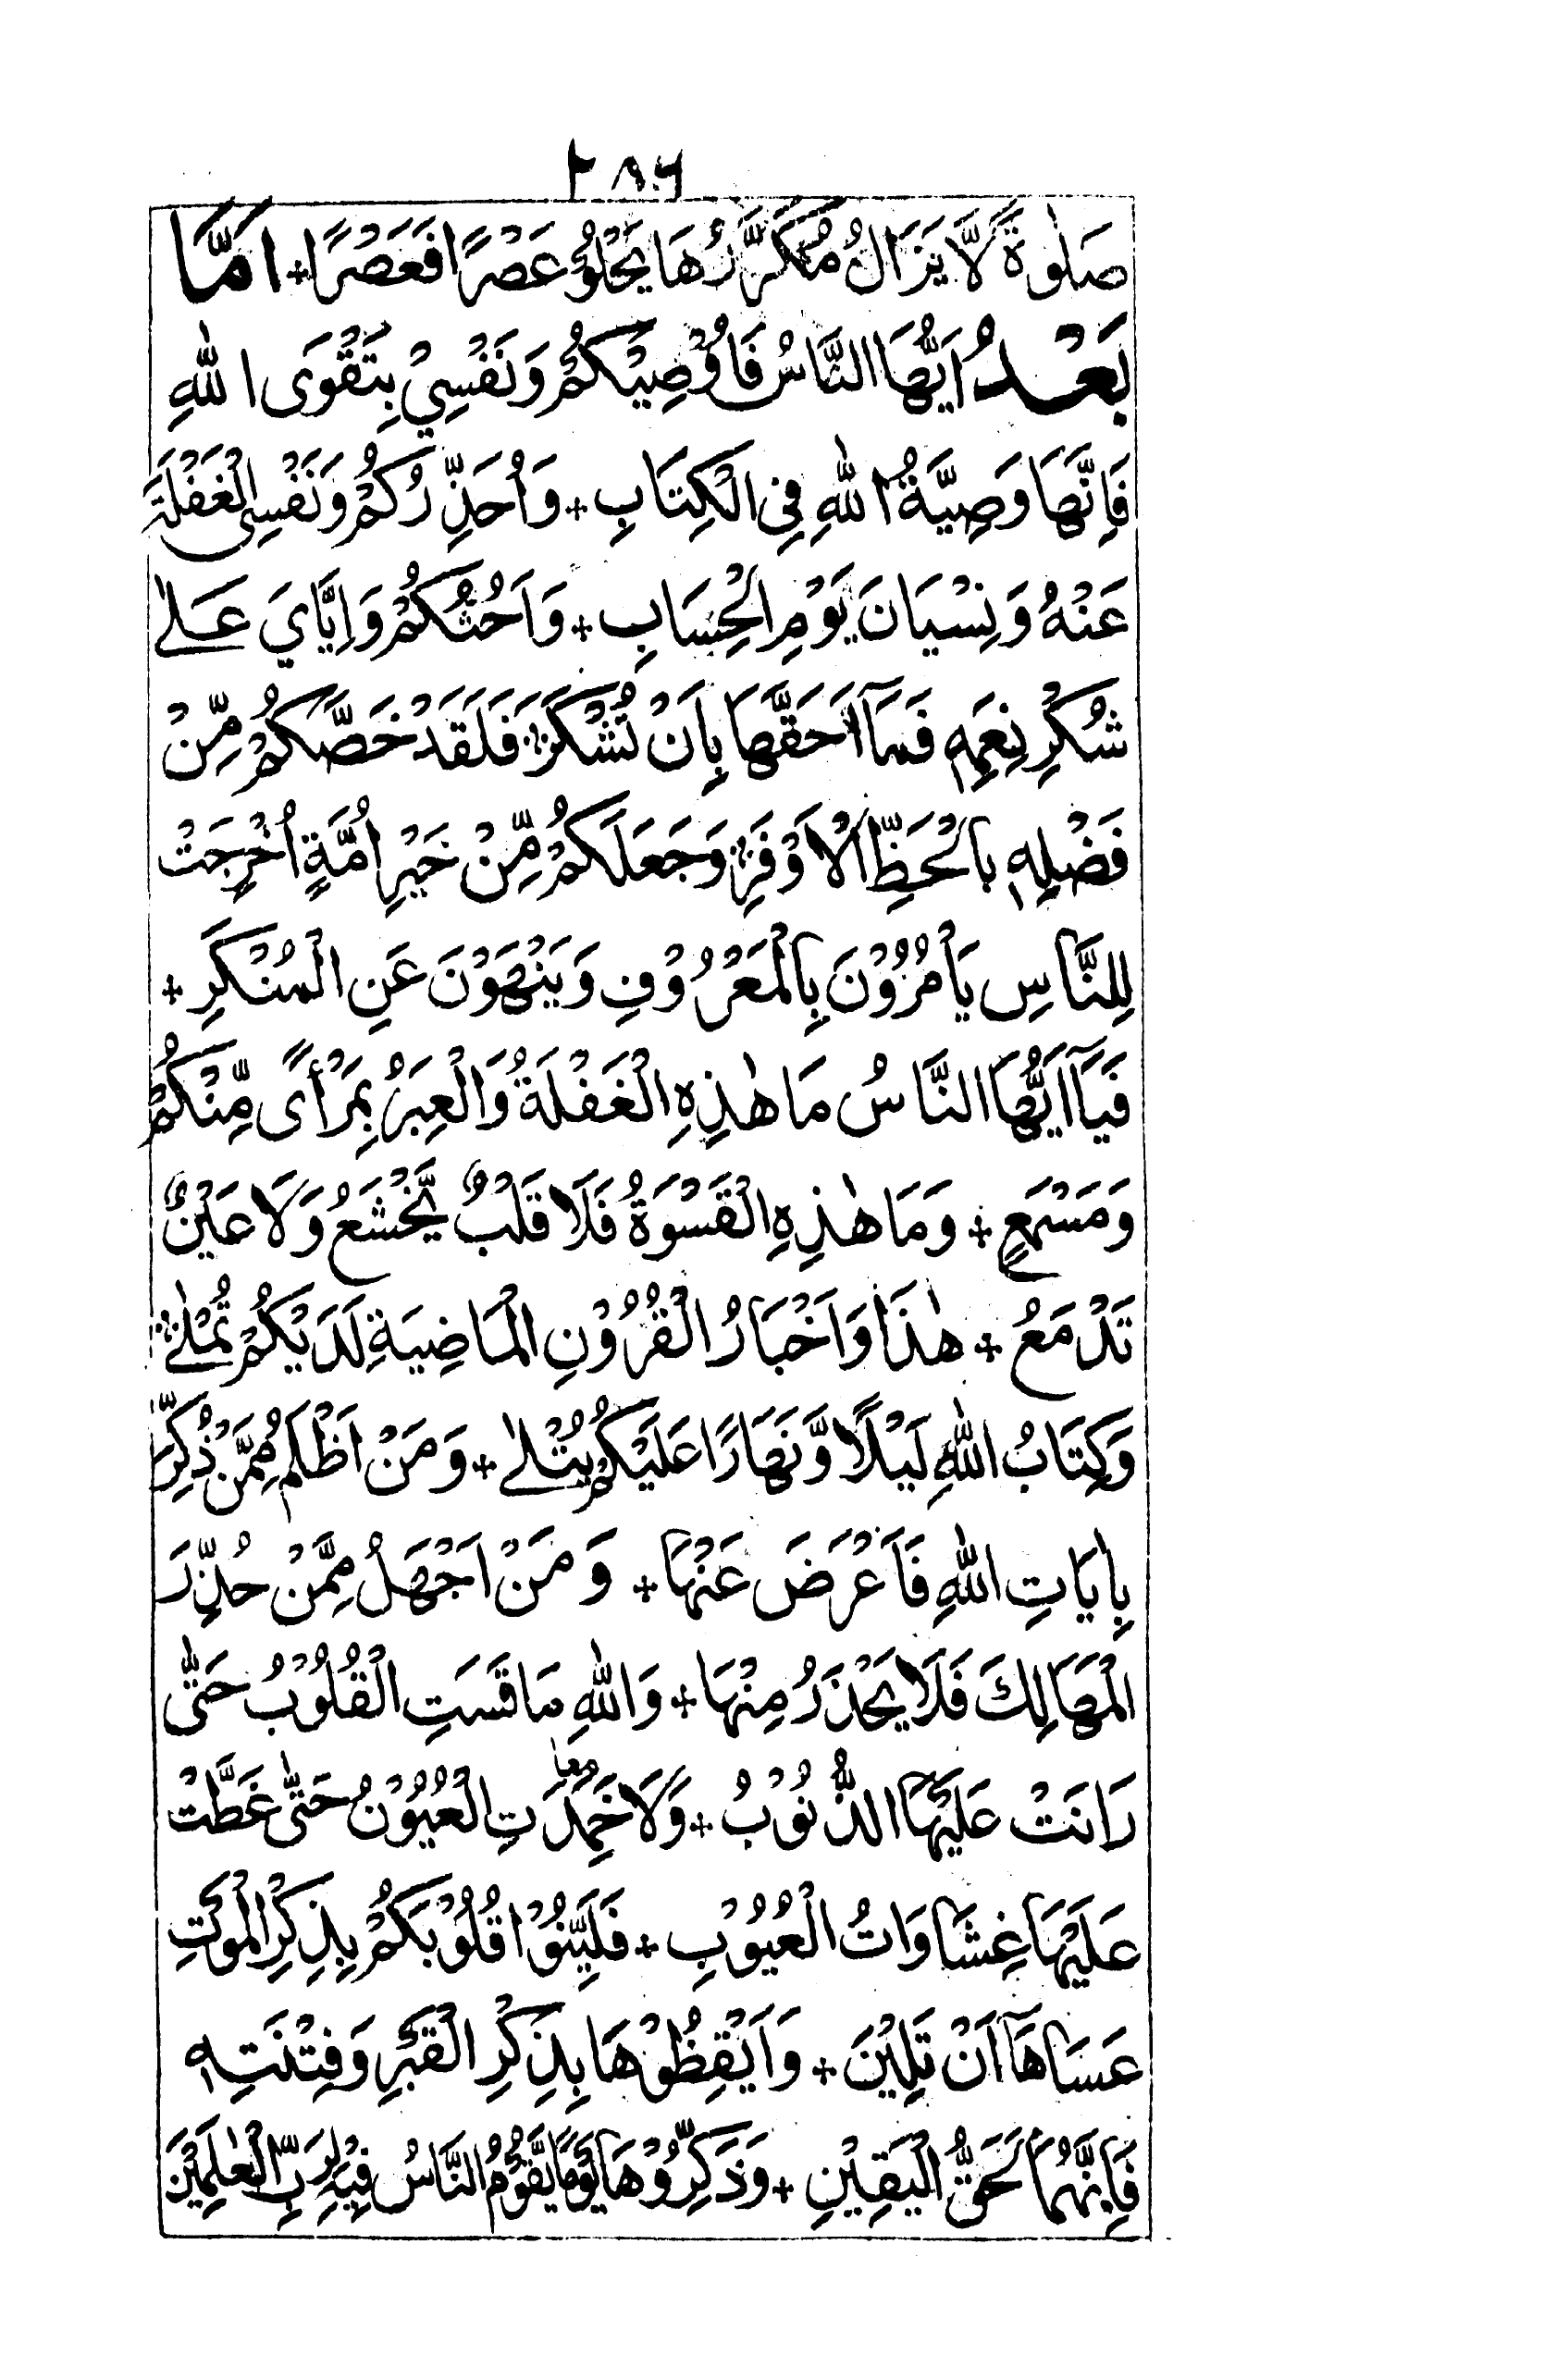 ۲۸۶
صَلٰوةً لَّا يَزَالُ مُكَرَّرُهَا يَحْلُوْ عَصْرًا فَعَصْرًا + اَمَّا
بَعْدُ اَيُّهَا النَّاسُ فَاُوْصِيْكُمْ وَنَفْسِيْ بِتَقْوَى اللّٰهِ
فَاِنَّهَا وَصِيَّةُ اللّٰهِ فِى الْكِتَابِ + وَاُحَذِّرُكُمْ وَنَفْسِى الْغَفْلَةَ
عَنْهُ وَنِسْيَانَ يَوْمِ الْحِسَابِ + وَاَحُثُّكُمْ وَاِيَّايَ عَلٰى
شُكْرِ نِعَمِهٖ فَمَآ اَحَقَّهَا بِاَنْ تُشْكَرَ + فَلَقَدْ خَصَّكُمْ مِّنْ
فَضْلِهٖ بِالْحَظِّ الْاَوْفَرِ + وَجَعَلَكُمْ مِّنْ خَيْرِ اُمَّةٍ اُخْرِجَتْ
لِلنَّاسِ يَاْمُرُوْنَ بِالْمَعْرُوْفِ وَيَنْهَوْنَ عَنِ الْمُنْكَرِ +
فَيَآ اَيُّهَا النَّاسُ مَا هٰذِهِ الْغَفْلَةُ وَالْعِبَرُ بِمَرْأًى مِّنْكُمْ
وَمَسْمَعٍ + وَمَا هٰذِهِ الْقَسْوَةُ فَلَا قَلْبٌ يَّخْشَعُ وَلَا عَيْنٌ
تَدْمَعُ + هٰذَا وَاَخْبَارُ الْقُرُوْنِ الْمَاضِيَةِ لَدَيْكُمْ تُمْلٰى +
وَكِتَابُ اللّٰهِ لَيْلًا وَّنَهَارًا عَلَيْكُمْ يُتْلٰى + وَمَنْ اَظْلَمُ مِمَّنْ ذُكِّرَ
بِاٰيَاتِ اللّٰهِ فَاَعْرَضَ عَنْهَا + وَمَنْ اَجْهَلُ مِمَّنْ حُذِّرَ
الْمَهَالِكَ فَلَا يَحْذَرُ مِنْهَا + وَاللّٰهِ مَا قَسَتِ الْقُلُوْبُ حَتّٰى
رَانَتْ عَلَيْهَا الذُّنُوْبُ + وَلَا خَمِدَتِ الْعُيُوْنُ حَتّٰى غَطَّتْ
عَلَيْهَا غِشَاوَاتُ الْعُيُوْبِ + فَلَيِّنُوْا قُلُوْبَكُمْ بِذِكْرِ الْمَوْتِ
عَسَاهَآ اَنْ تَلِيْنَ + وَاَيْقِظُوْهَا بِذِكْرِ الْقَبْرِ وَفِتْنَتِهٖ
فَاِنَّهُمَا لَحَقُّ الْيَقِيْنِ + وَذَكِّرُوْهَا يَوْمًا يَّقُوْمُ النَّاسُ فِيْهِ لِرَبِّ الْعٰلَمِيْنَ